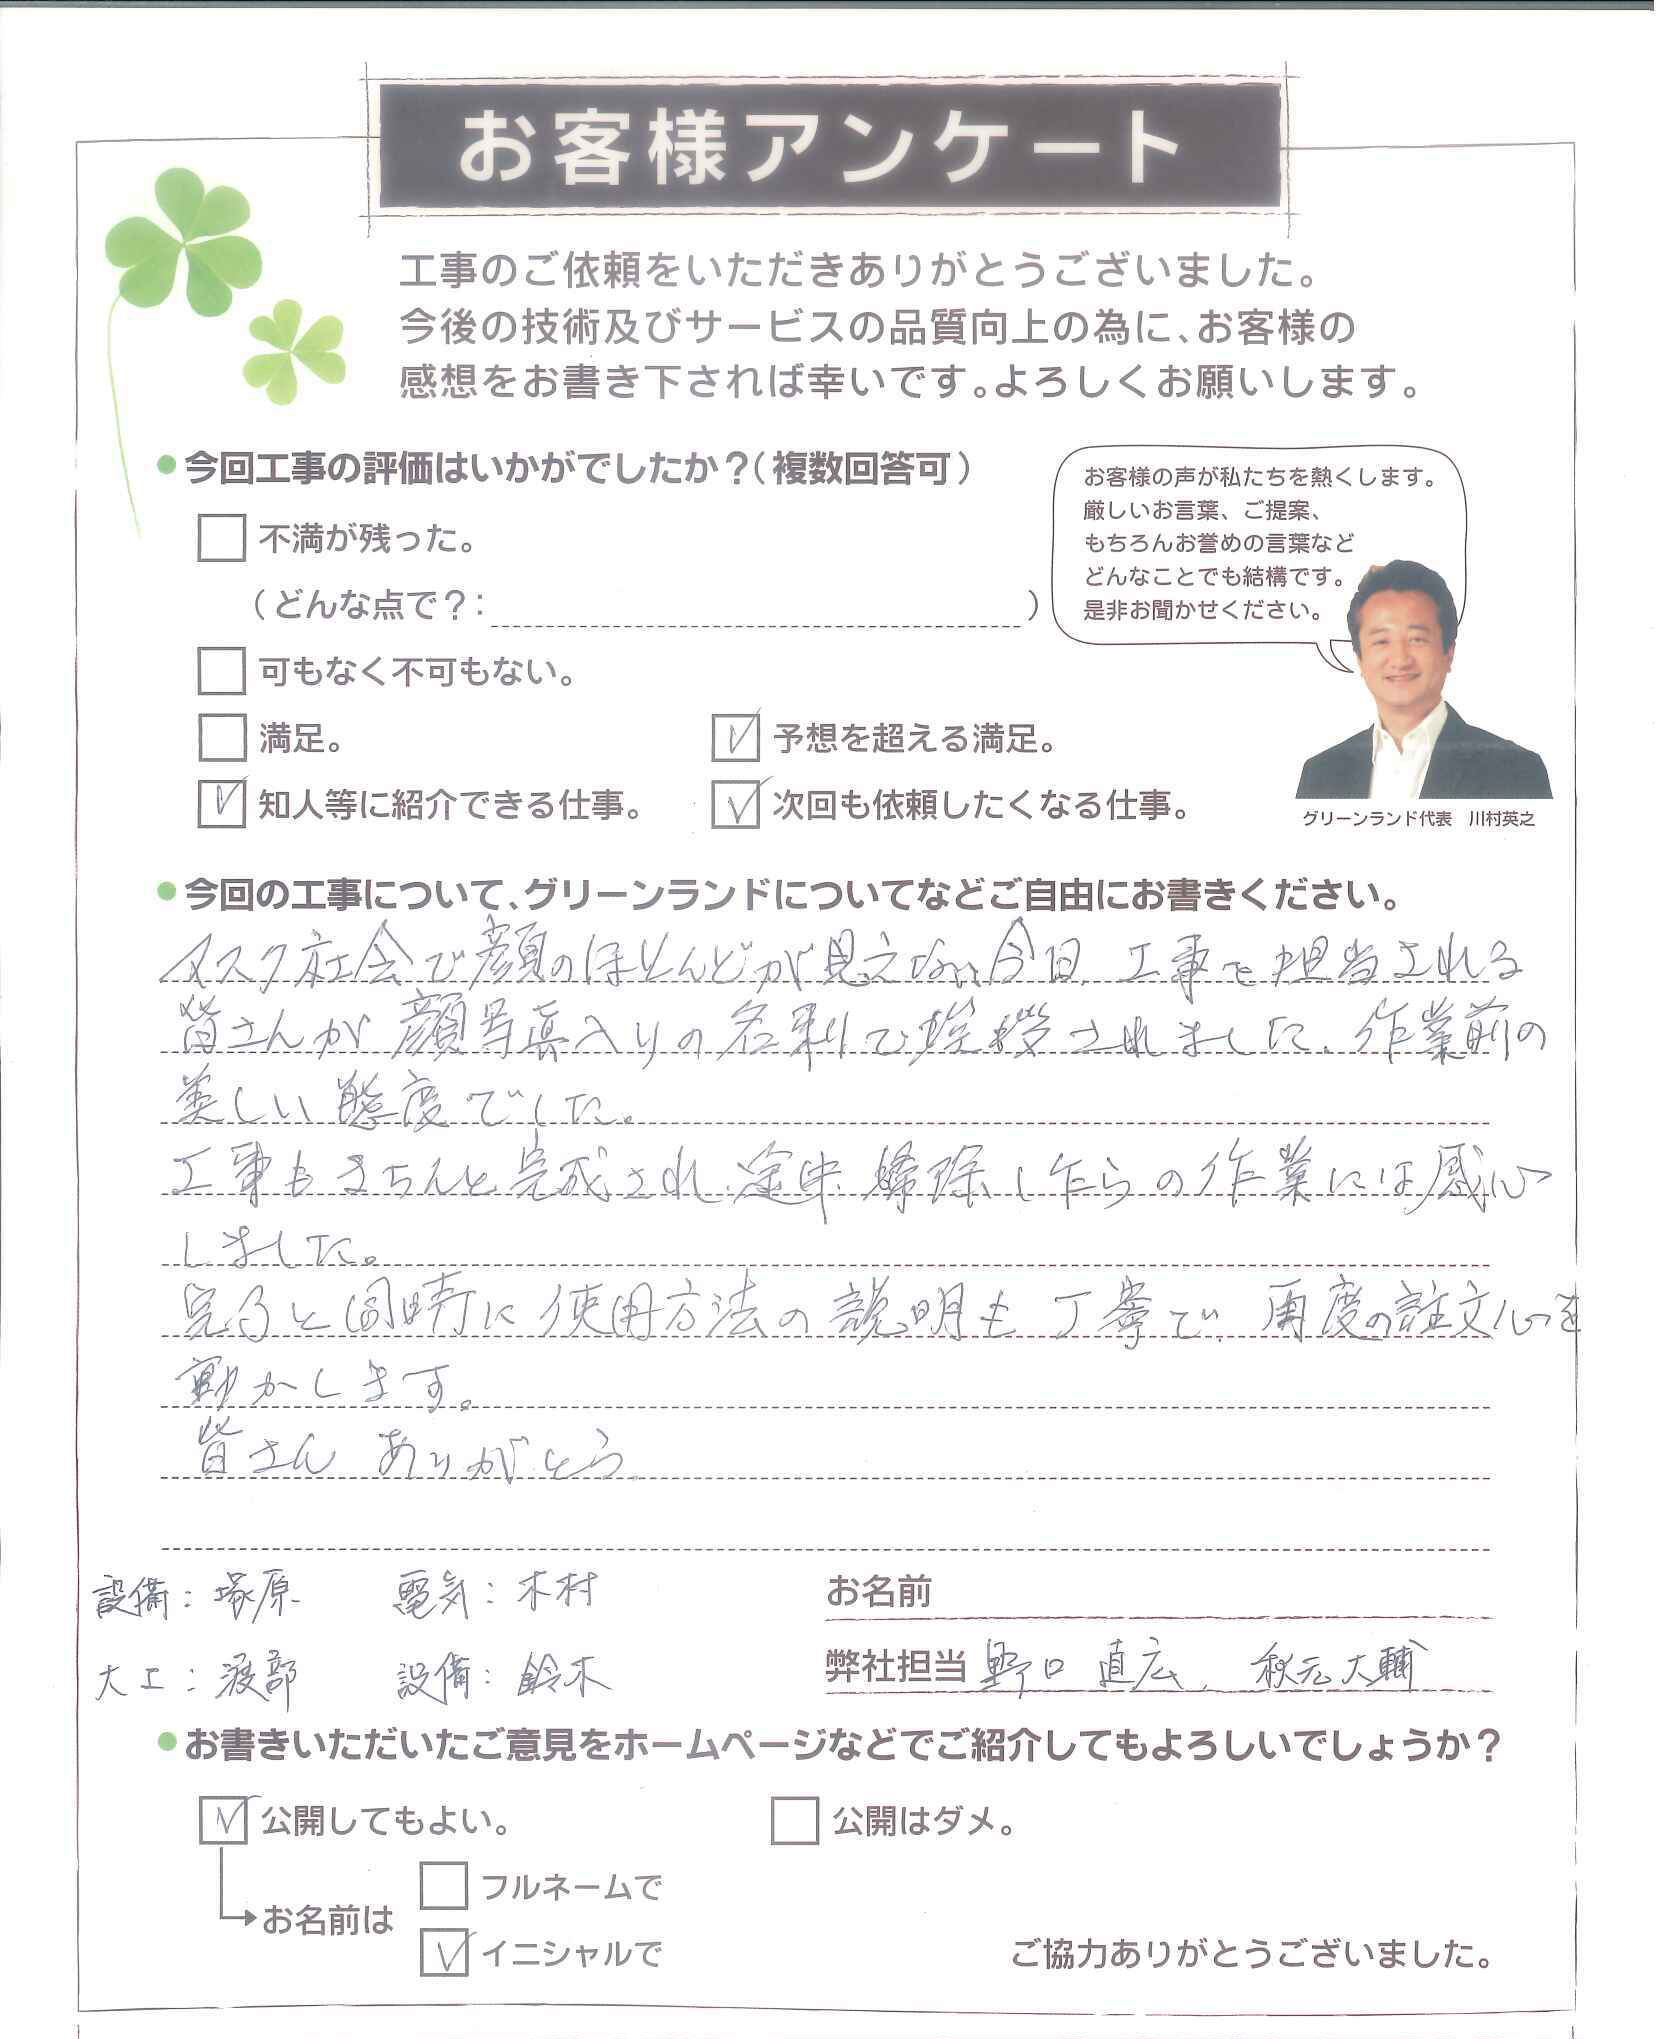 お客様アンケート
工事のご依頼をいただきありがとうございました。
今後の技術及びサービスの品質向上の為に、お客様の
感想をお書き下されば幸いです。よろしくお願いします。
今回工事の評価はいかがでしたか？（複数回答可）
不満が残った。
（どんな点で？：　　　）
可もなく不可もない。
満足。
予想を超える満足。
知人等に紹介できる仕事。
次回も依頼したくなる仕事。
お客様の声が私たちを熱くします。
厳しいお言葉、ご提案、
もちろんお誉めの言葉など
どんなことでも結構です。
是非お聞かせください。
グリーンランド代表　川村英之
今回の工事について、グリーンランドについてなどご自由にお書きください。
マスク社会で顔のほとんどが見えない今日、工事を担当される
皆さんが顔写真入りの名刺で挨拶されました。作業前の
美しい態度でした。
工事もきちんと完成され、途中掃除しながらの作業には感心
しました。
完了と同時に使用方法の説明も丁寧で、再度の註文心を
動かします。
皆さん ありがとう。
設備：塚原　電気：木村
大工：渡部　設備：鈴木
お名前
弊社担当 野口 直広、秋元大輔
お書きいただいたご意見をホームページなどでご紹介してもよろしいでしょうか？
公開してもよい。
公開はダメ。
お名前は
フルネームで
イニシャルで
ご協力ありがとうございました。